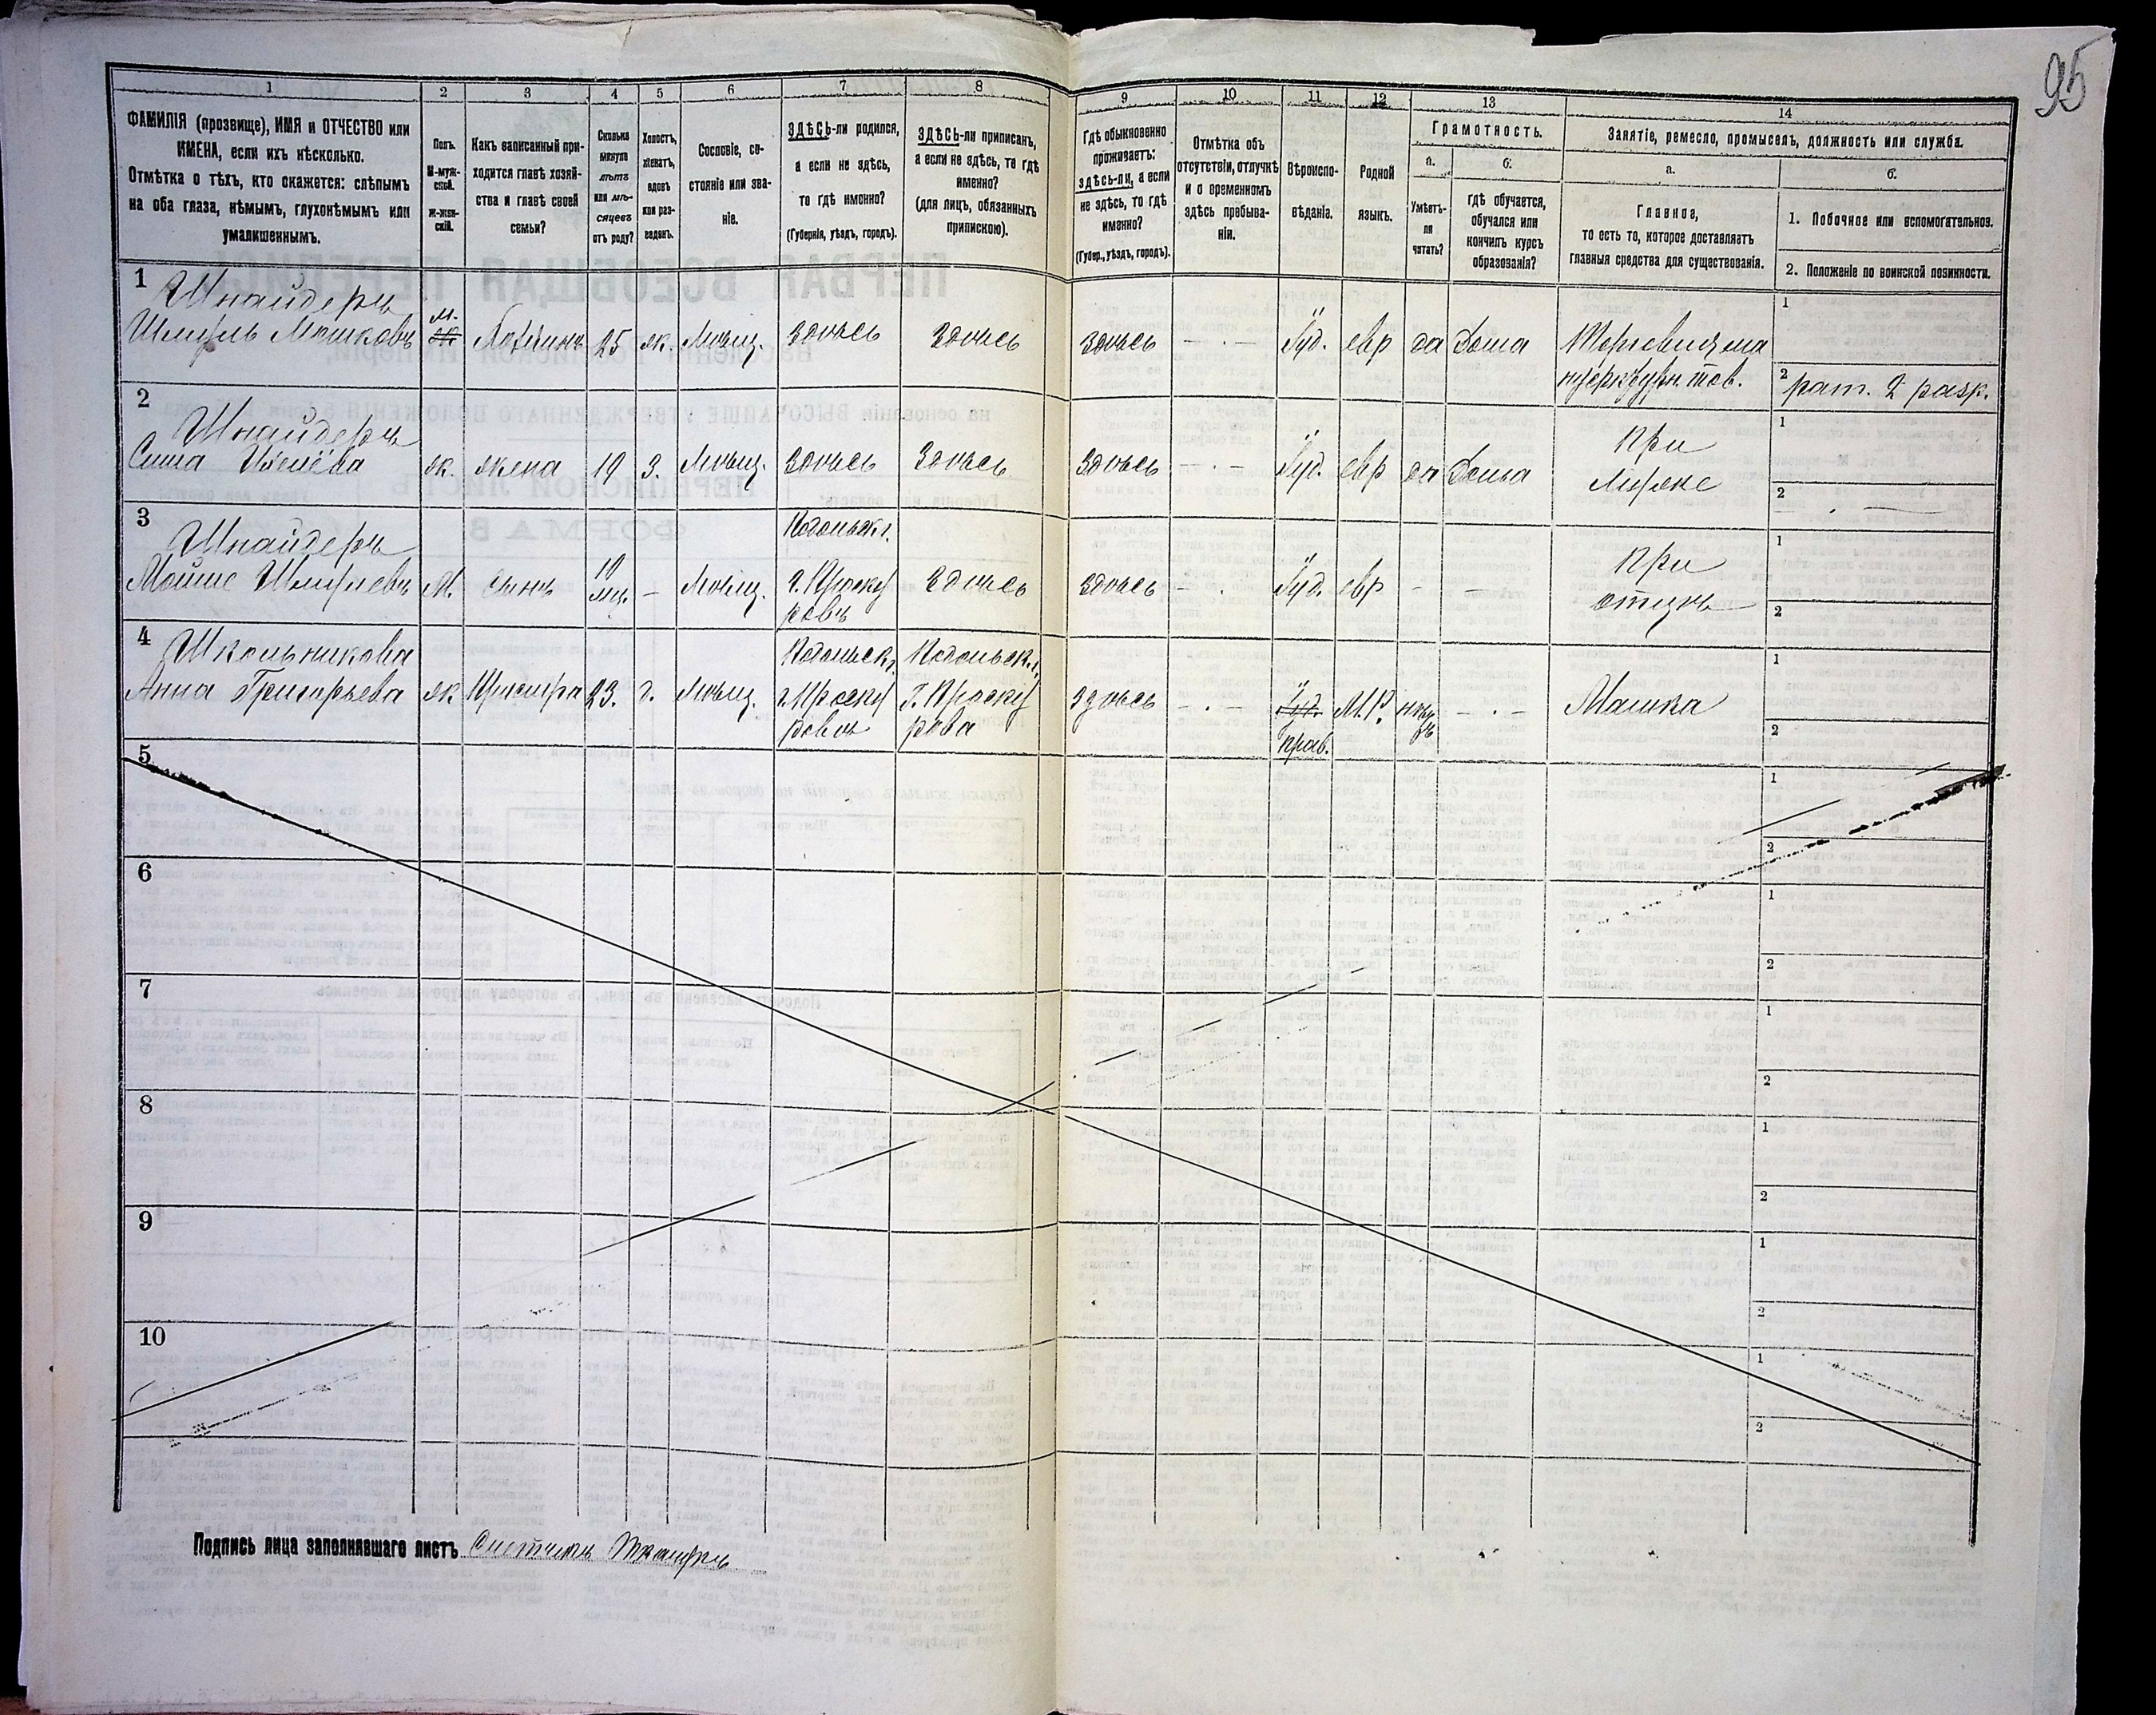 95
1 2 3 4 5 6 7 8 9 10 11 12 13 14
ФАМИЛІЯ (прозвище), ИМЯ и ОТЧЕСТВО или
ИМЕНА, если ихъ нѣсколько.
Отмѣтка о тѣхъ, кто скажется: слѣпымъ
на оба глаза, нѣмымъ, глухонѣмымъ или
умалишеннымъ.
Полъ.
М-муж-
ской.
Ж-жен-
скій.
Какъ записанный при-
ходится главѣ хозяй-
ства и главѣ своей
семьи?
Сколько
минуло
лѣтъ
или мѣ-
сяцевъ
отъ роду?
Холостъ,
женатъ,
вдовъ
или раз-
веденъ.
Сословіе, со-
стояніе или зва-
ніе.
ЗДѢСЬ-ли родился,
а если не здѣсь,
то гдѣ именно?
(Губернія, уѣздъ, городъ).
ЗДѢСЬ-ли приписанъ,
а если не здѣсь, то гдѣ
именно?
(для лицъ, обязанныхъ
припискою).
Гдѣ обыкновенно
проживаетъ:
здѣсь-ли, а если
не здѣсь, то гдѣ
именно?
(Губер., уѣздъ, городъ).
Отмѣтка объ
отсутствіи, отлучкѣ
и о временномъ
здѣсь пребыва-
ніи.
Вѣроиспо-
вѣданіе.
Родной
языкъ.
Грамотность.
а.
Умѣетъ-
ли
читать?
б.
гдѣ обучается,
обучался или
кончилъ курсъ
образованія?
Занятіе, ремесло, промыселъ, должность или служба.
а.
Главное,
то есть то, которое доставляетъ
главныя средства для существованія.
б.
1. Побочное или вспомогательное.
2. Положеніе по воинской повинности.
1
Шнайдеръ
Шмуль Мошковъ
М.
Хозяинъ 25 ж. Мѣщ. Здѣсь Здѣсь
Здѣсь — · — Іуд. евр да Дома
1
2 рат. 2 разр.
2
Шнайдеръ
ж. жена 19 З. Мѣщ. Здѣсь Здѣсь
Здѣсь — · — Іуд. евр да Дома
При
Мужѣ
1
2
3
Шнайдеръ
Мойше Шмулевъ М. сынъ 10 мц. — Мѣщ.
Подольск.
г. Проску
ровъ
Здѣсь
Здѣсь — · Іуд. евр — —
При
отцѣ
1
2
4
Школьникова
Анна Григорьева ж Прислуга 23. д. Мѣщ.
Подольск.
г. Проску
ровъ
Подольск.
г. Проску
рова
Здѣсь — · — Іуд. прав. М.Р. — · —
Мамка
1
2
5
1
2
6
1
2
7
1
2
8
1
2
9
1
2
10
1
2
Подпись лица заполнявшаго листъ Счетчикъ